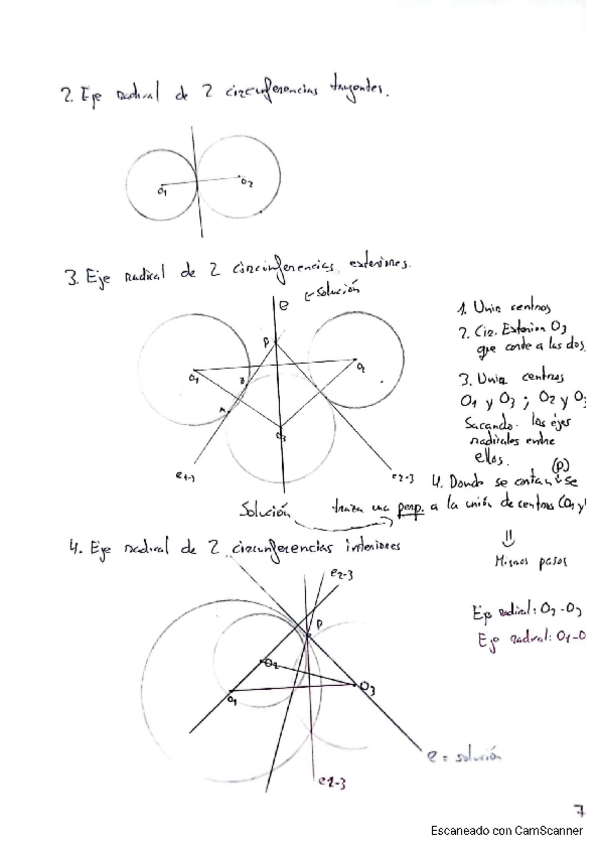 2. Eje radical de 2 circunferencias tangentes.
O1 O2
3. Eje radical de 2 circunferencias exteriores.
e ← Solución
P
O1 O2
O3
e1-3 e2-3
Solución
1. Unir centros
2. Cir. Exterior O3
que corte a las dos
3. Unir centros
O1 y O3 ; O2 y O3
Sacando los ejes
radicales entre
ellos.
(P)
4. Donde se cortan se
traza una perp. a la unión de centros (O1 y
4. Eje radical de 2 circunferencias interiores
=
Mismos pasos
Eje radical: O2-O3
Eje radical: O1-O
e2-3
P
O2
O1 O3
e = solución
e2-3
7
Escaneado con CamScanner